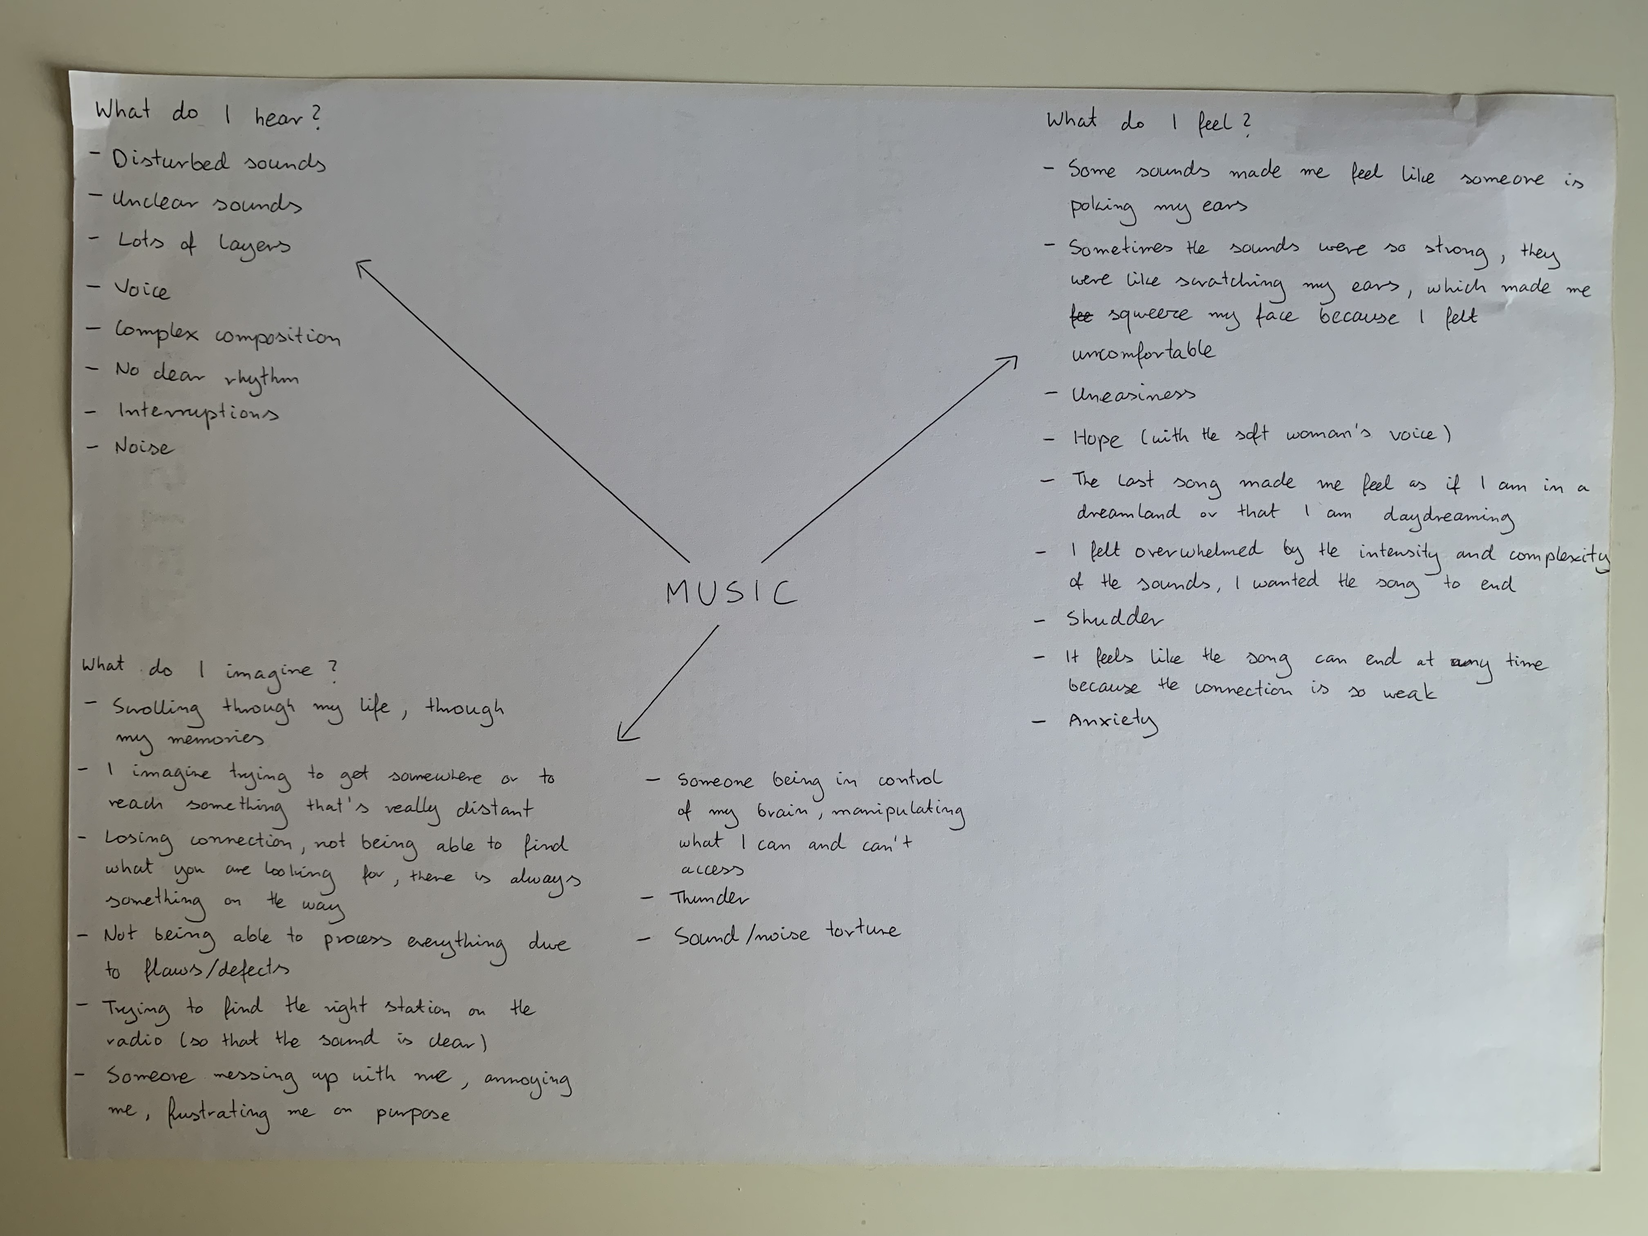 What do I hear?
- Disturbed sounds
- Unclear sounds
- Lots of layers
- Voice
- Complex composition
- No clear rhythm
- Interruptions
- Noise
What do I feel?
- Some sounds made me feel like someone is
poking my ears
- Sometimes the sounds were so strong, they
were like scratching my ears, which made me
fee squeeze my face because I felt
uncomfortable
- Uneasiness
- Hope (with the soft woman's voice)
- The last song made me feel as if I am in a
dreamland or that I am daydreaming
- I felt overwhelmed by the intensity and complexity
of the sounds, I wanted the song to end
- Shudder
- It feels like the song can end at any time
because the connection is so weak
- Anxiety
MUSIC
What do I imagine?
- Scrolling through my life, through
my memories
- I imagine trying to get somewhere or to
reach something that's really distant
- Losing connection, not being able to find
what you are looking for, there is always
something on the way
- Not being able to process everything due
to flaws/defects
- Trying to find the right station on the
radio (so that the sound is clear)
- Someone messing up with me, annoying
me, frustrating me on purpose
- Someone being in control
of my brain, manipulating
what I can and can't
access
- Thunder
- Sound/noise torture